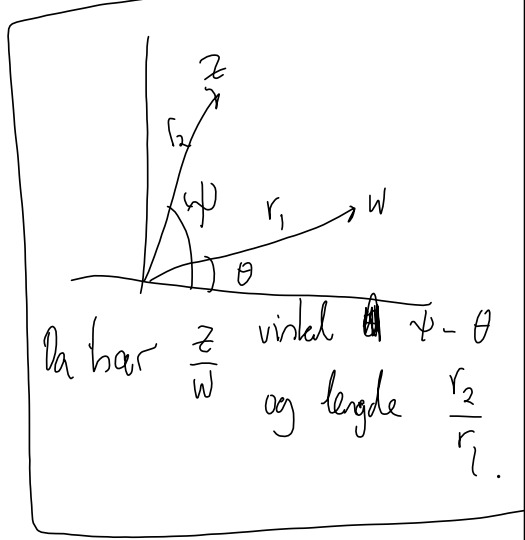 z
r₂
ψ
r₁
w
θ
Da har z/w vinkel ψ - θ
og lengde r₂/r₁.